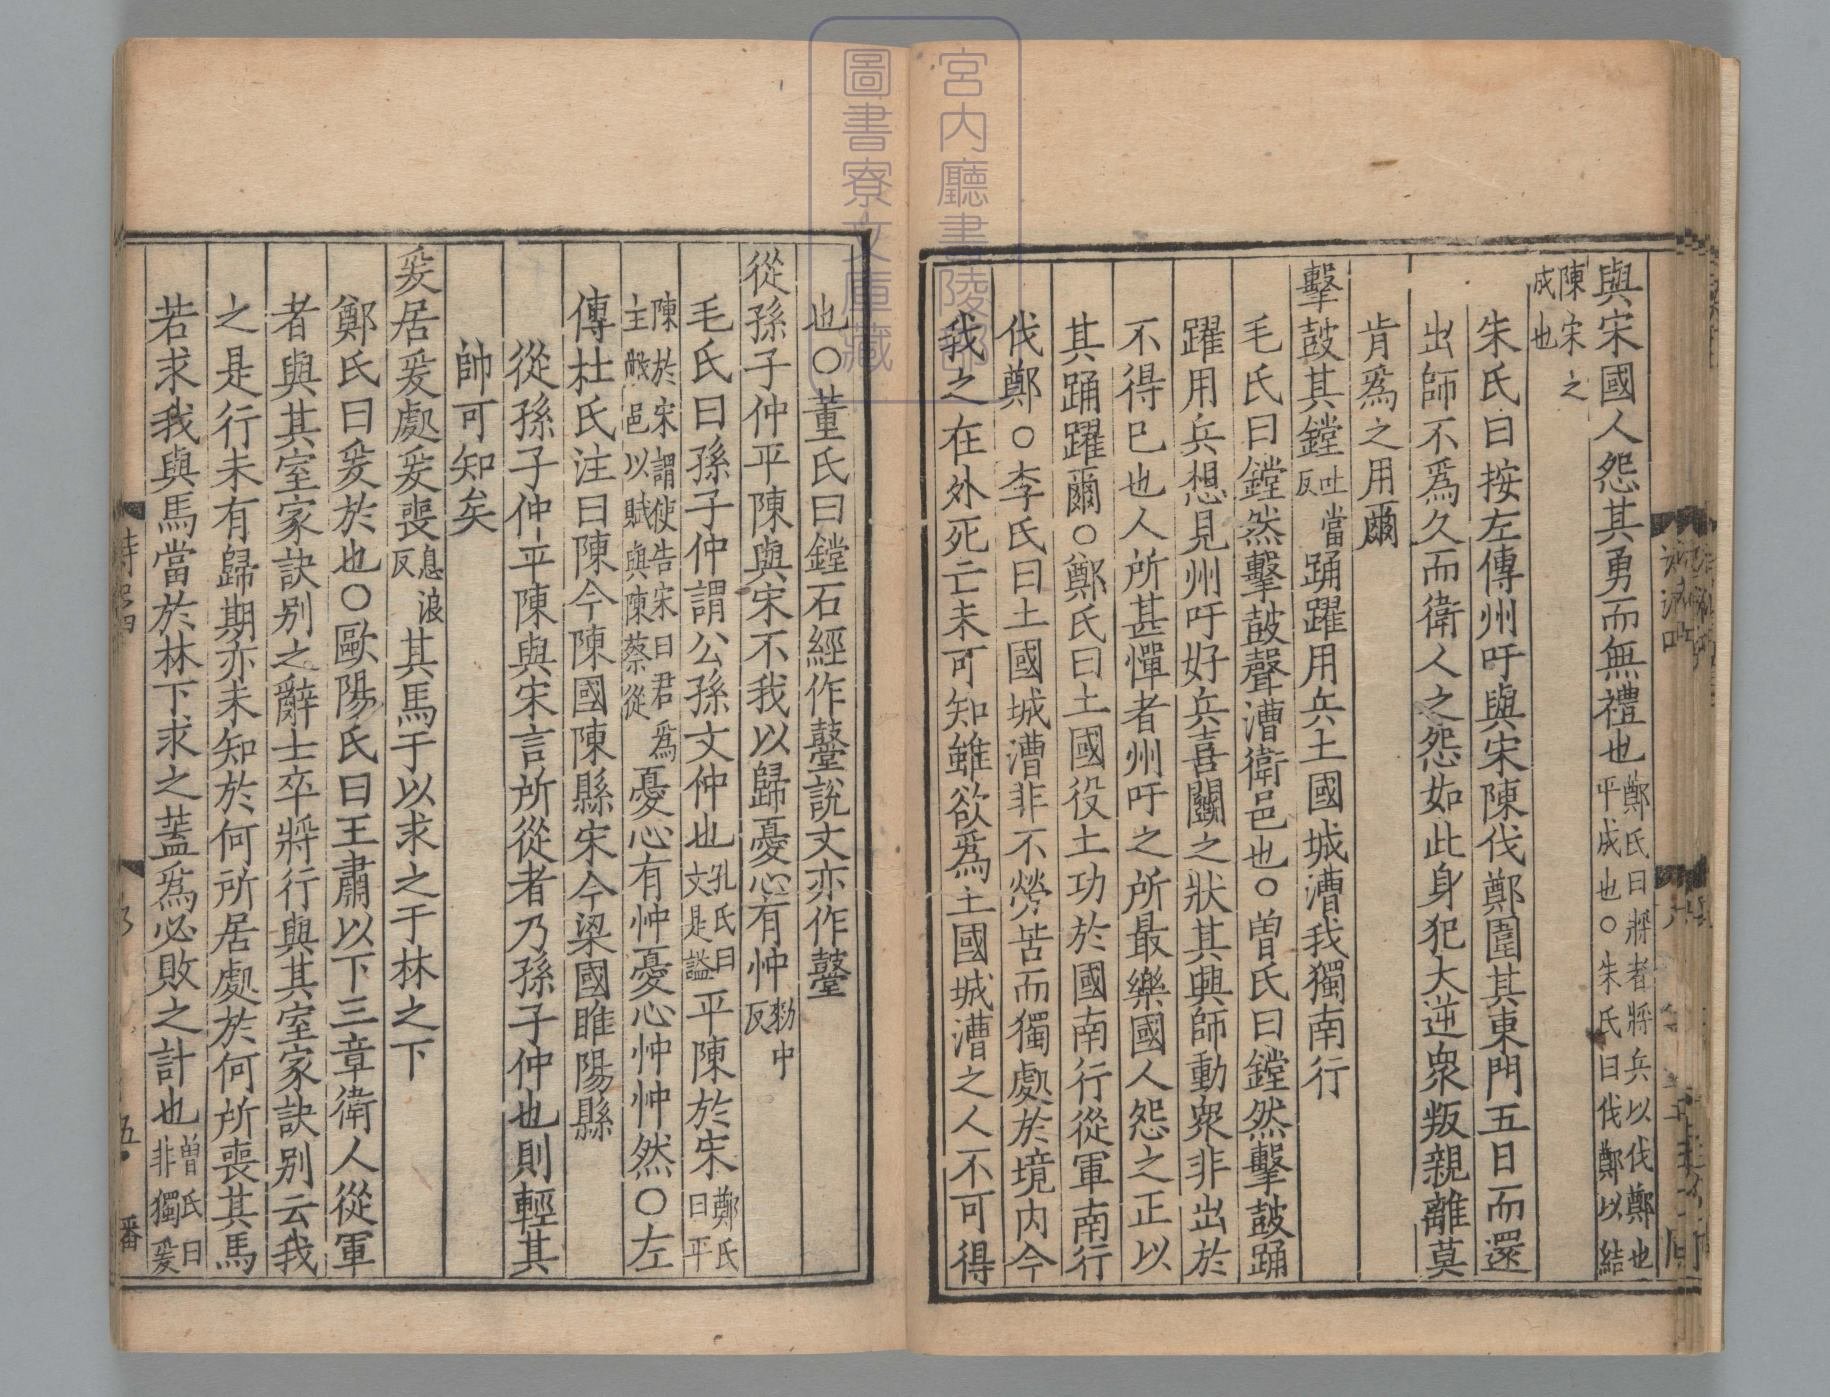 與宋國人怨其勇而無禮也鄭氏曰將者將兵以伐鄭也平成也○朱氏曰伐鄭以結
陳宋之成也
朱氏曰按左傳州吁與宋陳伐鄭圍其東門五日而還
出師不爲久而衛人之怨如此身犯大逆衆叛親離莫
肯爲之用爾
擊鼓其鏜吐當反踊躍用兵土國城漕我獨南行
毛氏曰鏜然擊鼓聲漕衛邑也○曽氏曰鏜然擊鼓踊
躍用兵想見州吁好兵喜鬭之狀其興師動衆非出於
不得已也人所甚憚者州吁之所最樂國人怨之正以
其踊躍爾○鄭氏曰土國役土功於國南行從軍南行
伐鄭○李氏曰土國城漕非不勞苦而獨處於境内今
我之在外死亡未可知雖欲爲土國城漕之人不可得
也○董氏曰鏜石經作鼞說文亦作鼞
從孫子仲平陳與宋不我以歸憂心有忡勑中反
毛氏曰孫子仲謂公孫文仲也孔氏曰文是謚平陳於宋鄭氏曰平
陳於宋謂使告宋曰君爲主敝邑以賦與陳蔡從憂心有忡憂心忡忡然○左
傳杜氏注曰陳今陳國陳縣宋今梁國睢陽縣
從孫子仲平陳與宋言所從者乃孫子仲也則輕其
帥可知矣
爰居爰處爰喪息浪反其馬于以求之于林之下
鄭氏曰爰於也○歐陽氏曰王肅以下三章衛人從軍
者與其室家訣别之辭士卒將行與其室家訣别云我
之是行未有歸期亦未知於何所居處於何所喪其馬
若求我與馬當於林下求之蓋爲必敗之計也曽氏曰非獨爰
詩
五
番
宮内廳書陵部
圖書寮文庫藏